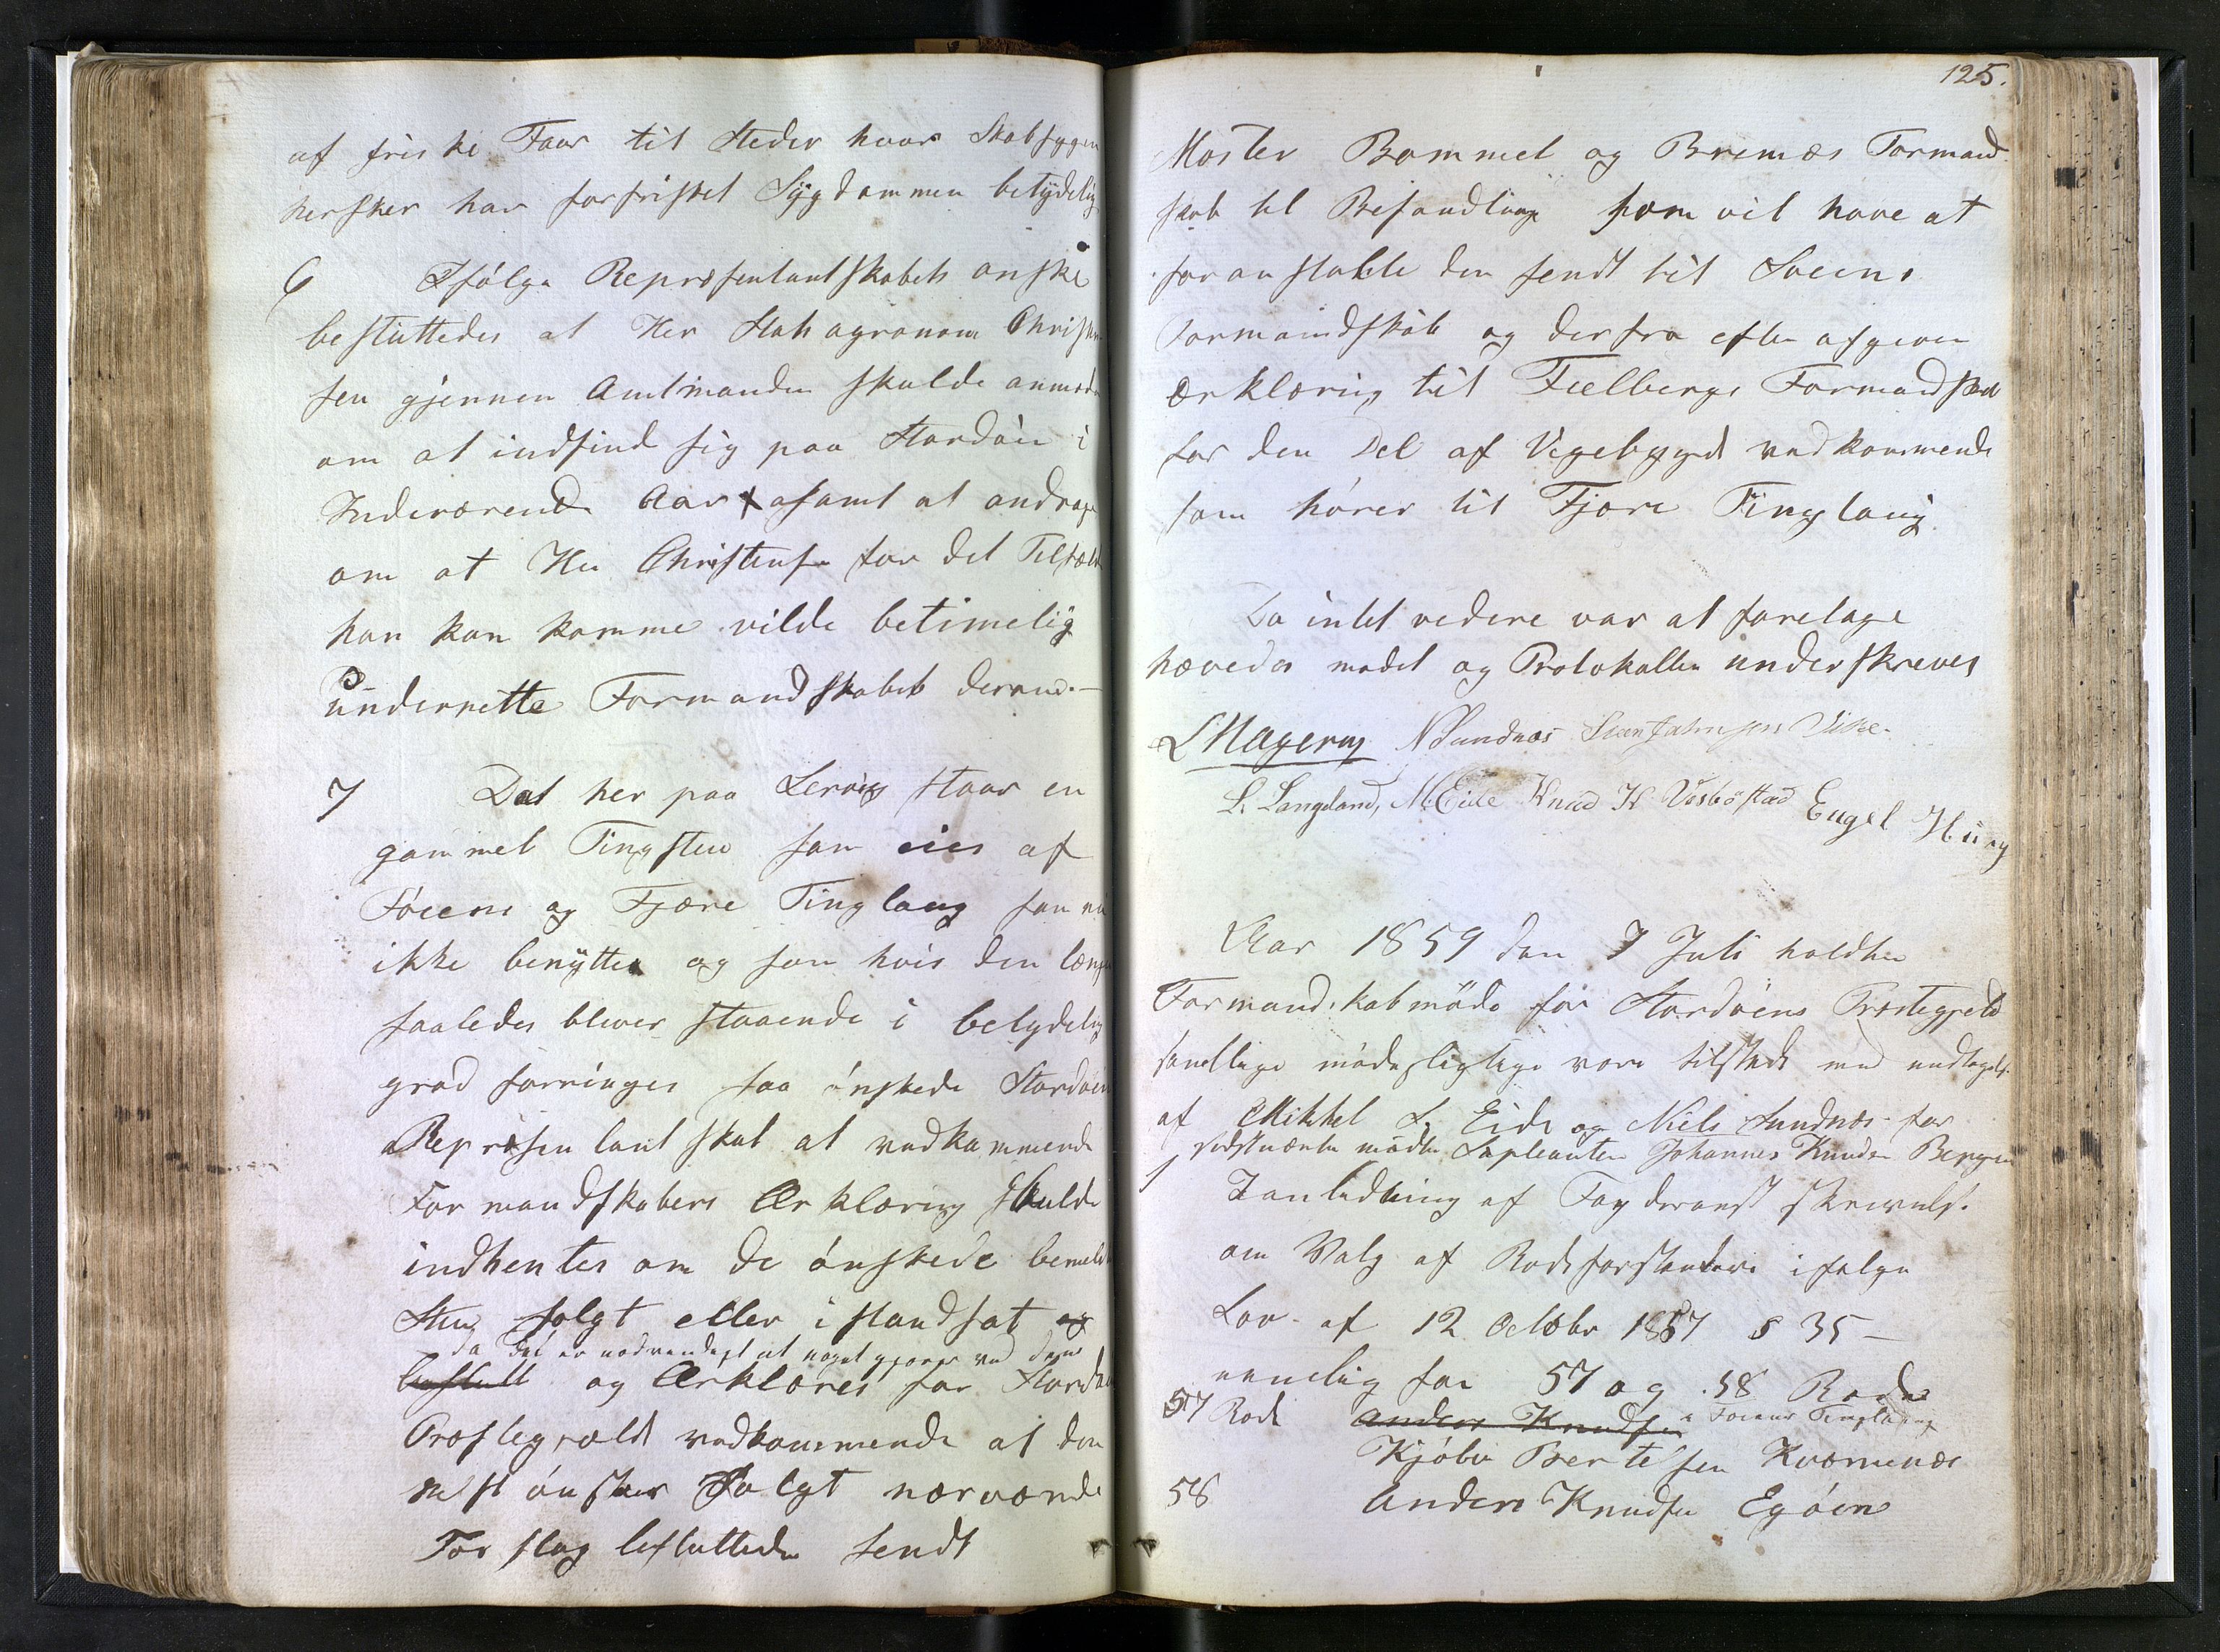 af friske Faar til Steder hvor Skabsygen
hersker har forfristet Sygdommen betydelig
6 Ifølge Repræsentantskabets ønske
besluttedes at Her Statsagronom Christen
sen gjennem Amtmanden skulde anmode
om at indfind sig paa Stordøen i
Indeværende Aar afamt at andrage
om at Her Christensen for det Tilfælde
han kan komme vilde betimelig
underrette Formandskabet derom.—
7 Dat her paa Lervig staar en
gammel Tingstue som eies af
Føiens og Fjære Tinglaug som nu
ikke benyttes og som hvis den længer
saaledes bliver staaende i betydelig
grad forringes saa ønskede Stordøen
Repræsentantskab at vedkommende
Formandskabers Erklæring skulde
indhentes om de ønskede bemeldte
Stue solgt eller istandsat og
da det er nødvendigt at noget gjøres ved den
og Erklæres for Stordøen
Præstegjæld vedkommende at den
helst ønskes Solgt nærværende
Forslag besluttedes sendt
125.
Moster Bømmel og Bremnes Formand
skab til Behandling som vil have at
foranstalte den sendt til Føiens
Formandskab og derfra efter afgiven
Erklæring til Fjelbergs Formandskab
for den Del af Vegebygd vedkommende
som hører til Fjære Tinglaug
Da intet videre var at foretage
hævedes mødet og Protokollen underskreves
L Magerøy N Sundnæs Sven Johnsen Vike.
L. Langeland, M. Eide Knud H Vestbøstad Engel Huug
Aar 1859 den 7 Juli holdtes
Formandskabmøde for Stordøens Præstegjeld
samtlige mødepligtige vare tilstede med undtagelse
af Mikkel L. Eide og Niels Sundnæs for
sidstnævnte mødte Supleanten Johannes Knudsen
1 I anledning af Fogderaast skrivelse
om Valg af Rodeforstandere ifølge
Lov af 12 Octobr 1857 § 35 —
nemlig for 57 og 58 Rode
i Føiens Tinglaug
57 Rode Anders Knudsen
Kjøbn Bertelsen Kværnenæs
58 Anders Knudsen Egøen